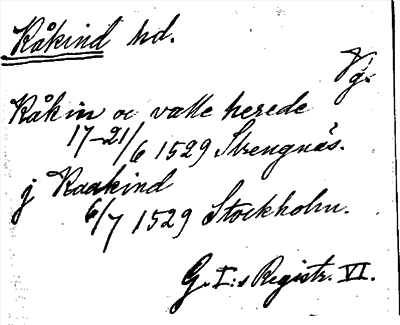 Råkind hd.
Vg.
Råkin oc valle herede
17-21/6 1529 Strengnäs.
j Raakind
6/7 1529 Stockholm.
G. I:s Registr. VI.